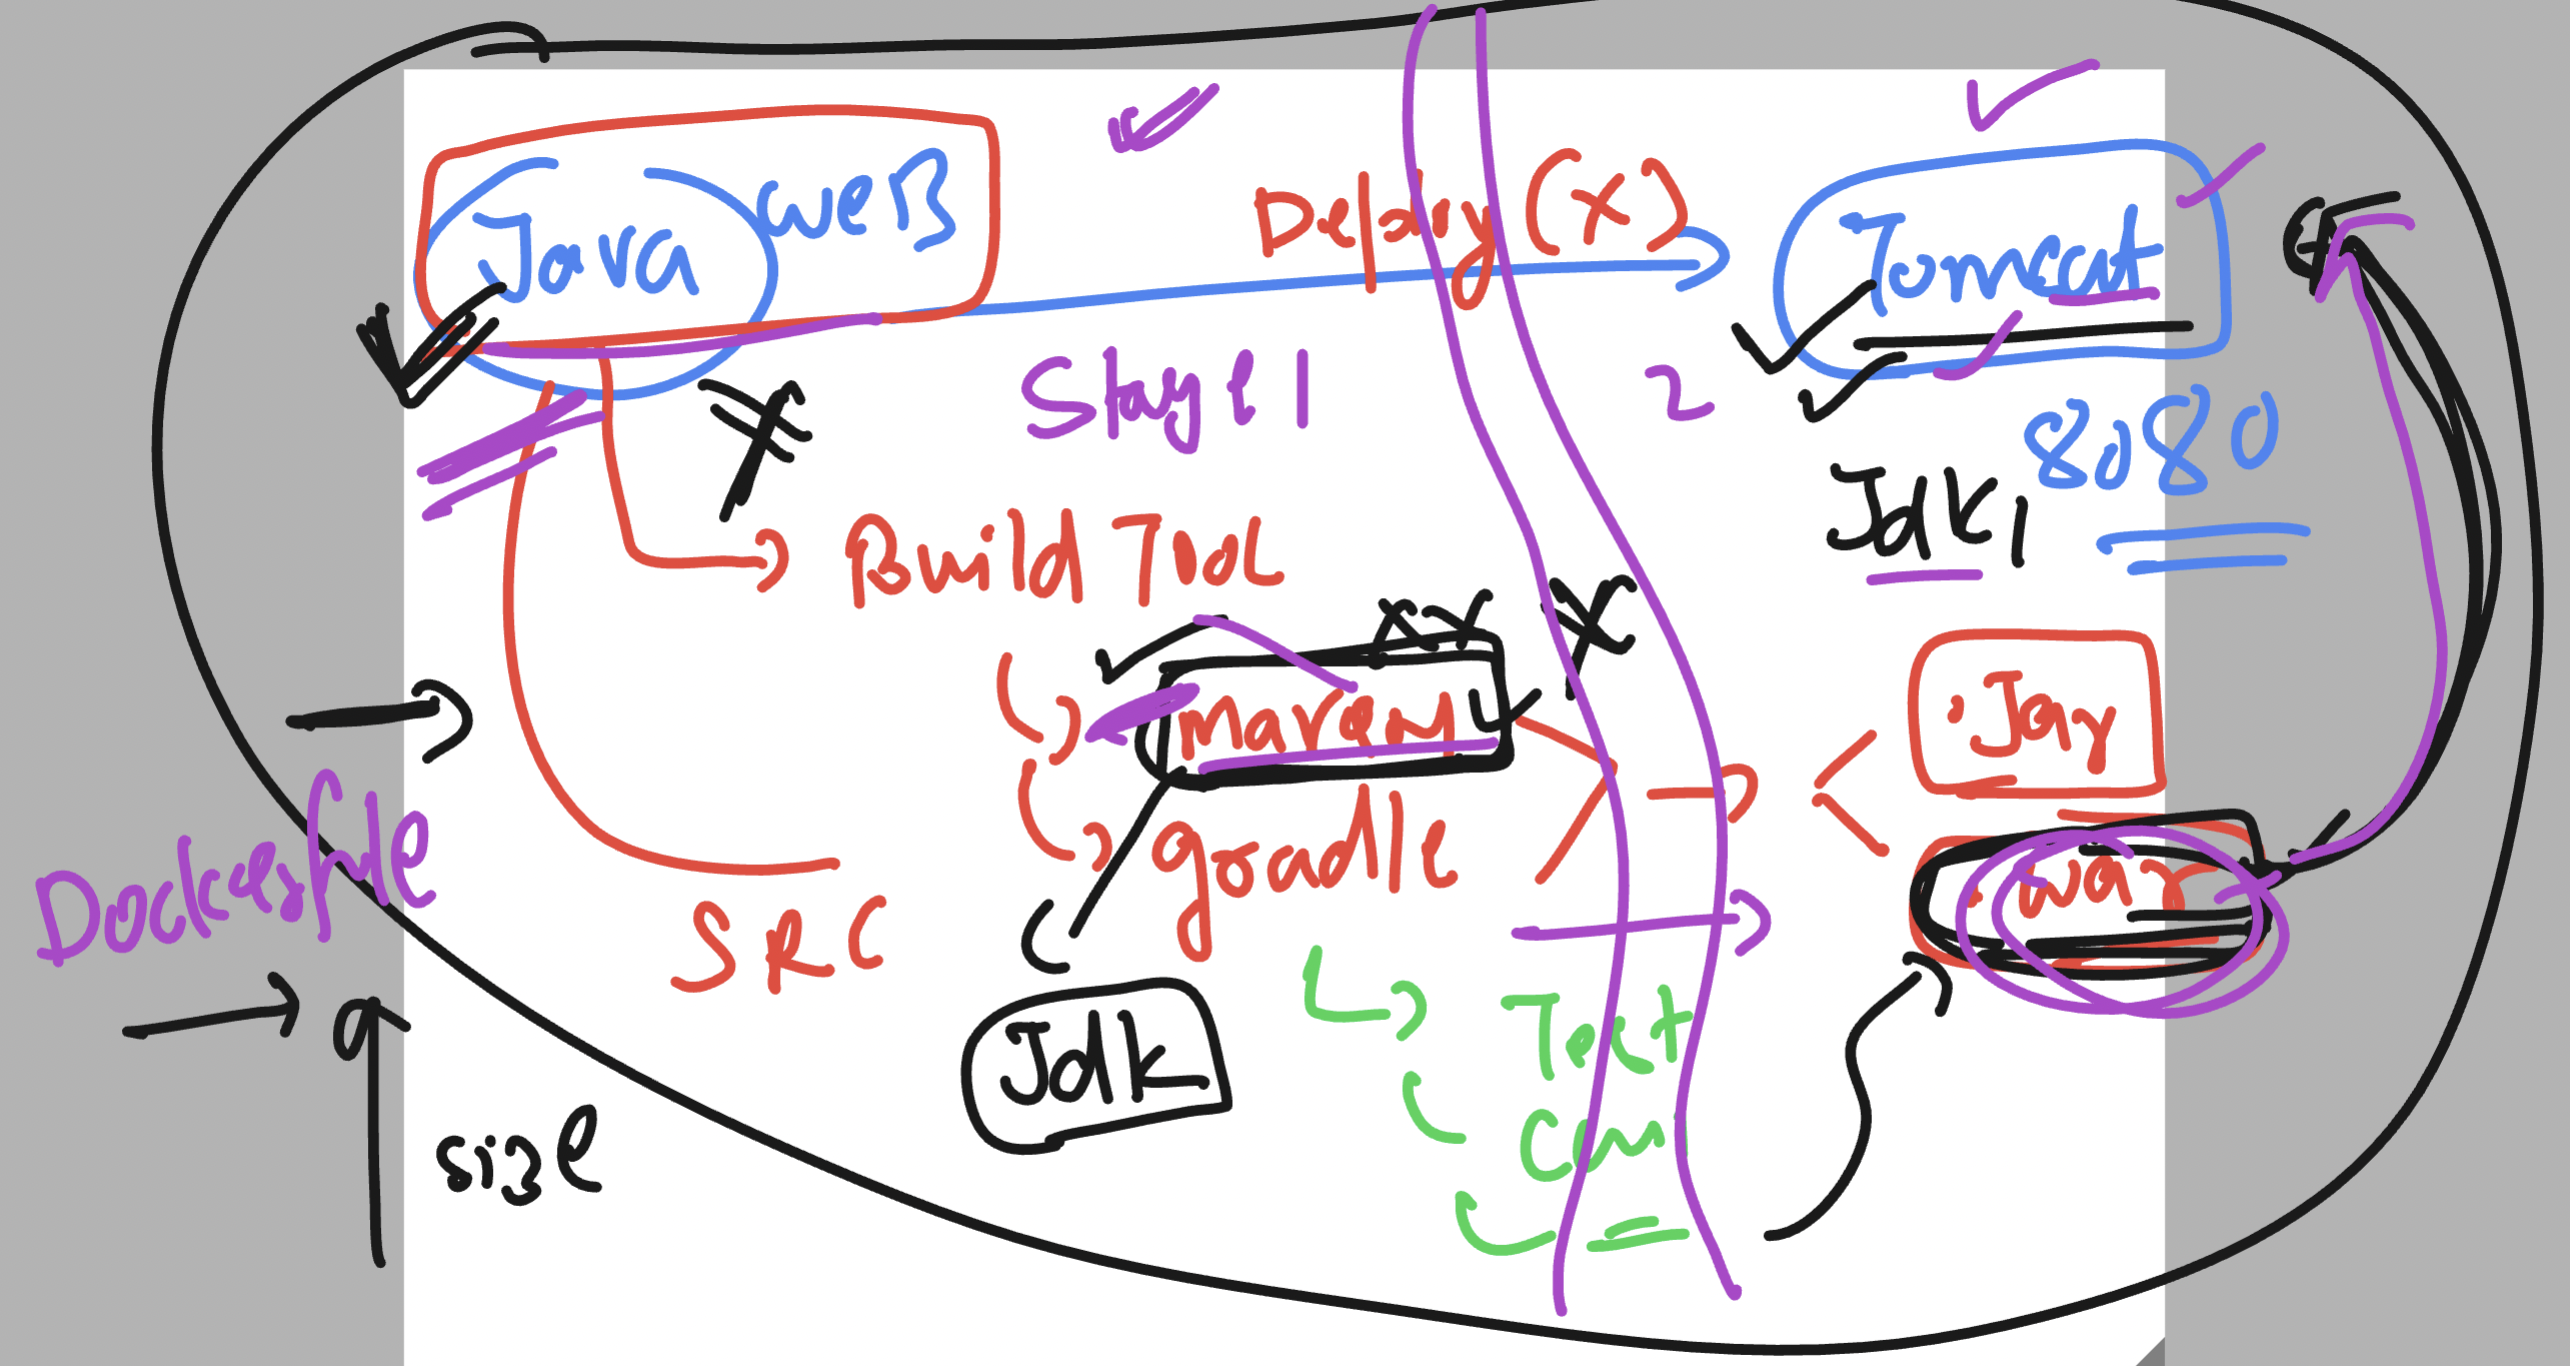 Java WeB
Deploy (x)
Tomcat
8080
Stage 1
2
Jdk,
Build Tool
maven
gradle
.Jar
.war
Dockerfile
SRC
Jdk
Test
size